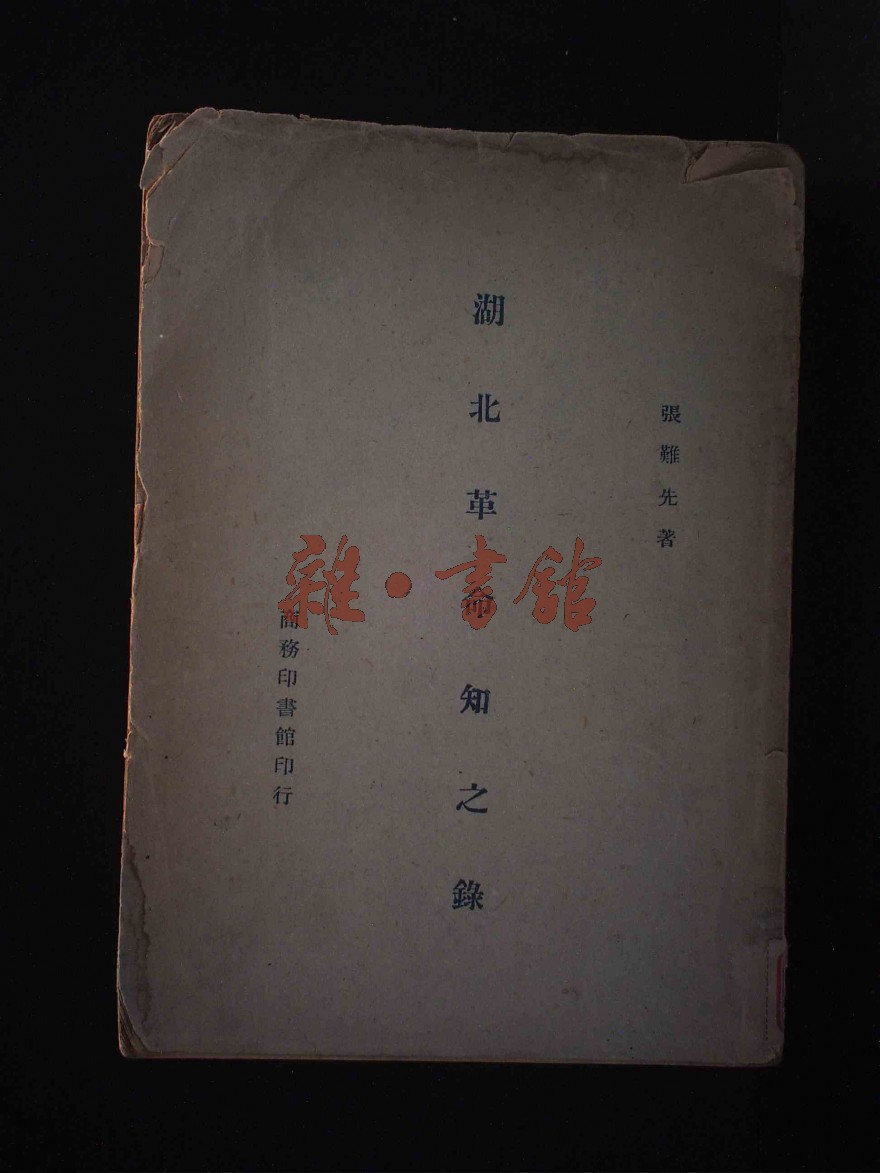 張難先著
湖北革命知之錄
商務印書館印行
雜·書館